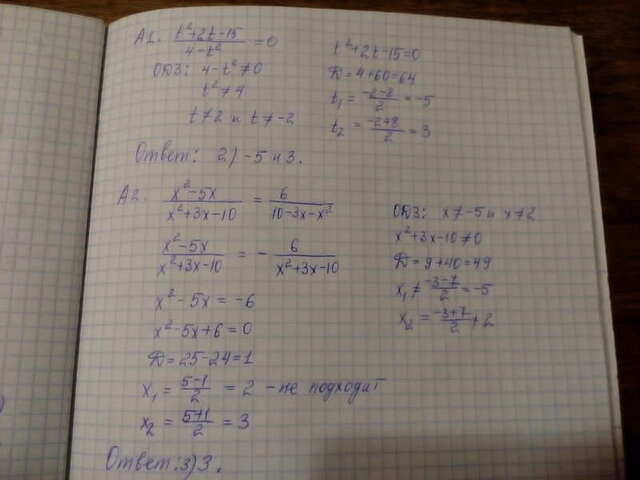 А1. (t²+2t-15)/(4-t²) = 0
ОДЗ: 4-t²≠0
t²≠4
t≠2 и t≠-2
t²+2t-15=0
D=4+60=64
t₁ = (-2-8)/2 = -5
t₂ = (-2+8)/2 = 3
Ответ: 2) -5 и 3.
А2. (x²-5x)/(x²+3x-10) = 6/(10-3x-x²)
(x²-5x)/(x²+3x-10) = - 6/(x²+3x-10)
x²-5x = -6
x²-5x+6=0
D=25-24=1
x₁ = (5-1)/2 = 2 - не подходит
x₂ = (5+1)/2 = 3
ОДЗ: x≠-5 и x≠2
x²+3x-10≠0
D=9+40=49
x₁ ≠ (-3-7)/2 = -5
x₂ = (-3+7)/2 ≠ 2
Ответ: 3) 3.